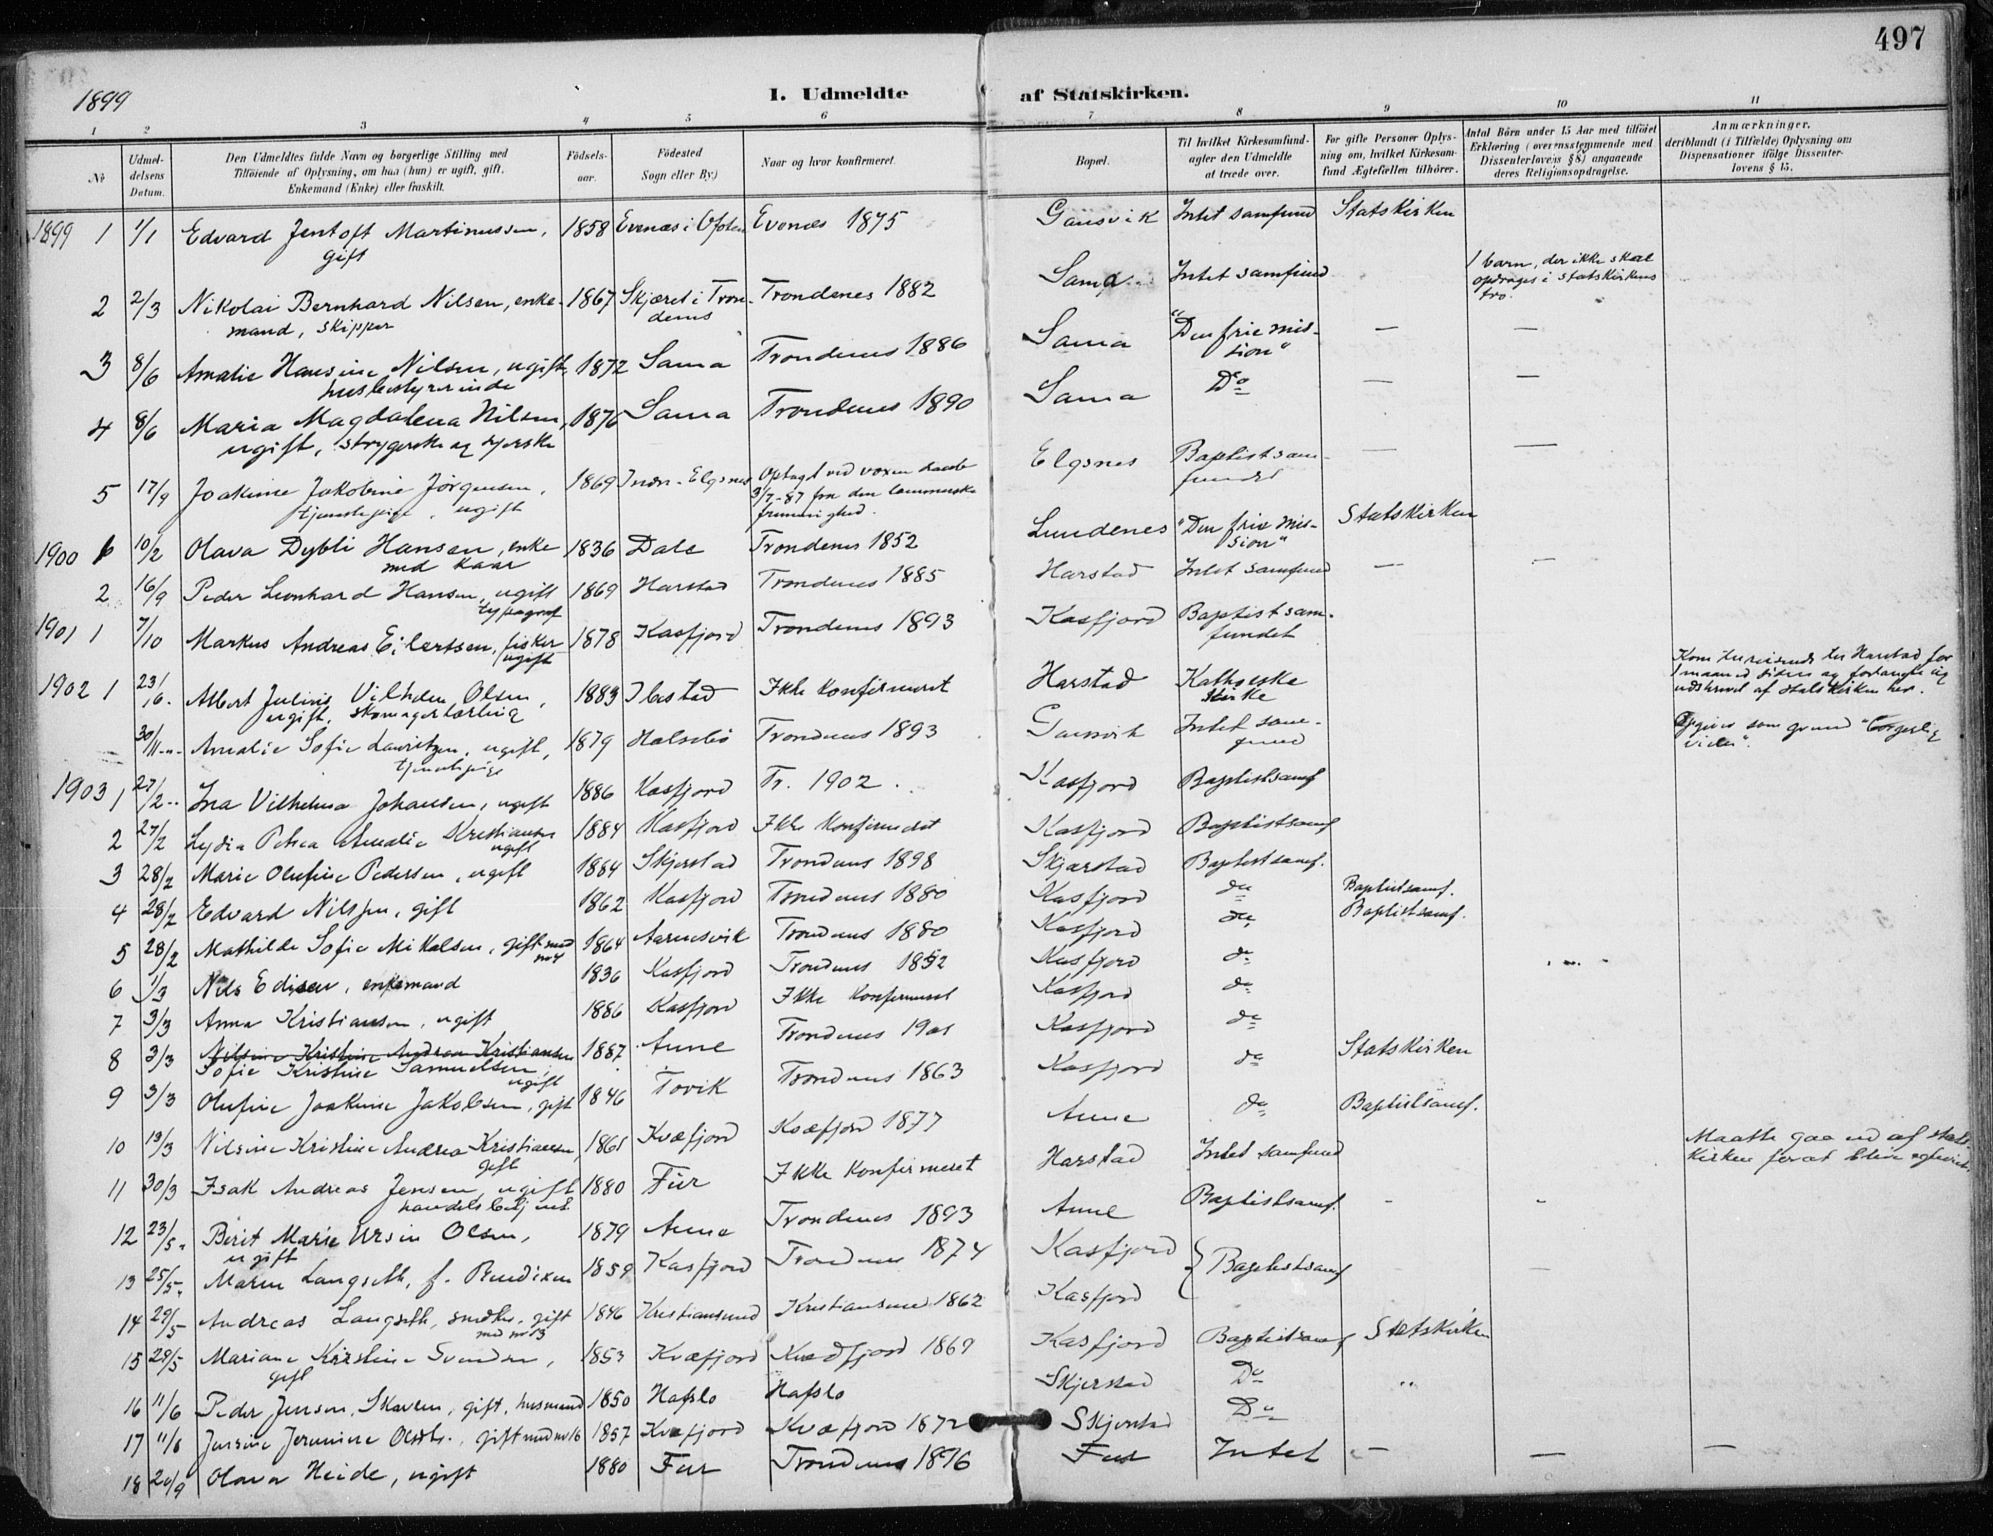 497
1899
I. Udmeldte af Statskirken.
1 2 3 4 5 6 7 8 9 10 11
No
Udmel-
delsens
Datum.
Den Udmeldtes fulde Navn og borgerlige Stilling med
Tilføiende af Oplysning, om han (hun) er ugift, gift,
Enkemand (Enke) eller fraskilt.
Födsels-
aar.
Födested
Sogn eller By.)
Naar og hvor konfirmeret.
Bopæl.
Til hvilket Kirkesamfund-
agter den Udmeldte
at træde over.
For gifte Personer Oplys-
ning om, hvilket Kirkesam-
fund Ægtefællen tilhörer.
Antal Börn under 15 Aar med tilföiet
Erklæring (overensstemmende med
Dissenterlovens § 8) angaaende
deres Religionsopdragelse.
Anmærkninger,
deriblandt (i Tilfælde) Oplysning om
Dispensationer ifölge Dissenter-
lovens § 15.
1899 1 1/1 Edvard Jentoft Martinussen, 1858 Evenæs i Ofoten Evenæs 1875 Gansvik Intet samfund Statskirken
gift
2 2/3 Nikolai Bernhard Nilsen, enke- 1867 Skjæret i Tron- Trondenes 1882 Sama Intet samfund 1 barn, der ikke skal
mand, skipper denes opdrages i statskirkens
tro.
3 8/6 Amalie Hansine Nilsen, ugift, 1872 Sama Trondenes 1886 Sama "Den frie mis- — —
husbestyrerinde sion"
4 8/6 Maria Magdalena Nilsen, 1876 Sama Trondenes 1890 Sama Do — —
ugift, strygerske og syerske
5 17/9 Joakime Jakobine Jörgensen, 1869 Elgsnes Optaget ved voxen daab Elgsnes Baptistsam- — —
tjenestepige, ugift 3/7-87 fra den fundet
1900 10/2 Olava Dybli Hansen, enke 1836 Dale Trondenes 1852 Lundenes "Den frie mis- Statskirken
med kaar sion"
2 16/9 Peder Leonhard Hansen, ugift 1869 Harstad Trondenes 1885 Harstad Intet samfund — —
typograf
1901 1 7/10 Markus Andreas Eilertsen, fisker 1878 Kasfjord Trondenes 1893 Kasfjord Baptistsam-
ugift fundet
1902 1 23/6 Albert Julius Vilhelm Olsen, 1883 Ibestad Ikke konfirmeret Harstad Katholske Kom til Harstad for
ugift, skomagerlærling kirke maaned siden og forlangte sig
udskrevet af statskirken her.
30/11 Amalie Sofie Lauritzen, ugift, 1879 Halsebö Trondenes 1893 Gansvik Intet sam- Opgiver som grund
tjenestepige fund
1903 1 27/2 Ina Vilhelma Johansen, ugift 1886 Kasfjord Tr. 1902 Kasfjord Baptistsamf
2 27/2 Lydia Petrea Amalie Kristiansen 1884 Kasfjord Ikke konfirmeret Kasfjord Baptistsamf
ugift
3 28/2 Marie Olufine Pedersen, ugift 1884 Skjerstad Trondenes 1898 Skjærstad Baptistsamf.
4 28/2 Edvard Nilssen, gift 1862 Kasfjord Trondenes 1880 Kasfjord do Baptistsamf.
5 28/2 Mathilde Sofie Mikalsen, gift med 1864 Aarnesvik Trondenes 1880 Kasfjord do Baptistsamf.
no 4
6 1/3 Nils Edisen, enkemand 1836 Kasfjord Trondenes 1852 Kasfjord do
7 3/3 Anna Kristiansen, ugift 1886 Kasfjord Ikke konfirmeret Kasfjord do
8 3/3 Nilsine Kristine Andrea Kristiansen 1887 Aune Trondenes 1901 Kasfjord do
Sofie Kristine Samuelsen,
ugift
9 3/3 Olufine Joakime Jakobsen, gift 1846 Tovik Trondenes 1863 Kasfjord do Statskirken
10 19/3 Nilsine Kristine Andrea Kristiansen, 1861 Kvæfjord Kvæfjord 1877 Aune do Baptistsamf.
gift
11 30/3 Isak Andreas Jensen, ugift 1880 Fur Ikke konfirmeret Harstad Intet samfund Maatte gaa ud af stats
handelsbetjent kirken forat blive
12 23/5 Berit Marie Ursin Olsen, 1879 Aune Trondenes 1893 Aune Baptistsamf. - -
ugift
13 25/5 Maren Langseth, f. Bendixen 1859 Kasfjord Trondenes 1874 Kasfjord } Baptistsamf —
14 29/5 Andreas Langseth, snedker, gift 1846 Kristiansund Kristiansund 1862 Kasfjord
med no 13
15 29/5 Mariane Kirstine Svendsen, 1853 Kvæfjord Kvædfjord 1869 Kasfjord Baptistsamf Statskirken
gift
16 11/6 Peder Jenson Skaren, gift, husmand 1850 Hafslo Hafslo Skjerstad Do "
17 11/6 Jensine Jermine gift med no 16 1857 Kvæfjord Kvæfjord 1872 Skjerstad Do
18 20/9 Olava Heide, ugift 1880 Fur Trondenes 1896 Fur Intet — — —